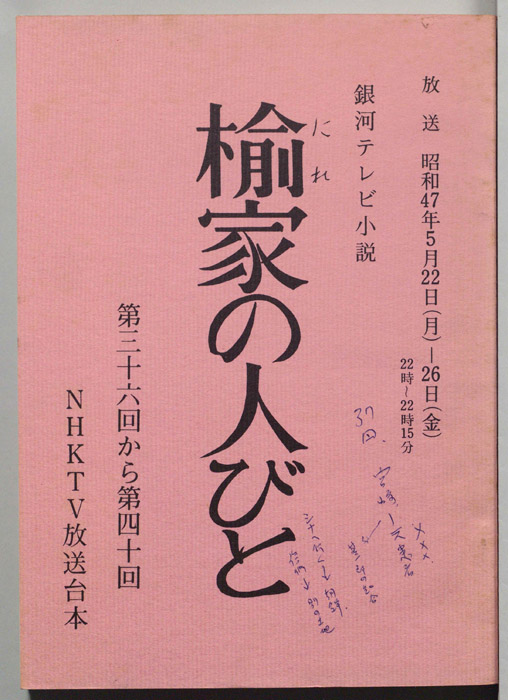 放送 昭和47年5月22日(月)─26日(金)
22時~22時15分
銀河テレビ小説
にれ
榆家の人びと
第三十六回から第四十回
NHKTV放送台本
37回、
宮崎
×××